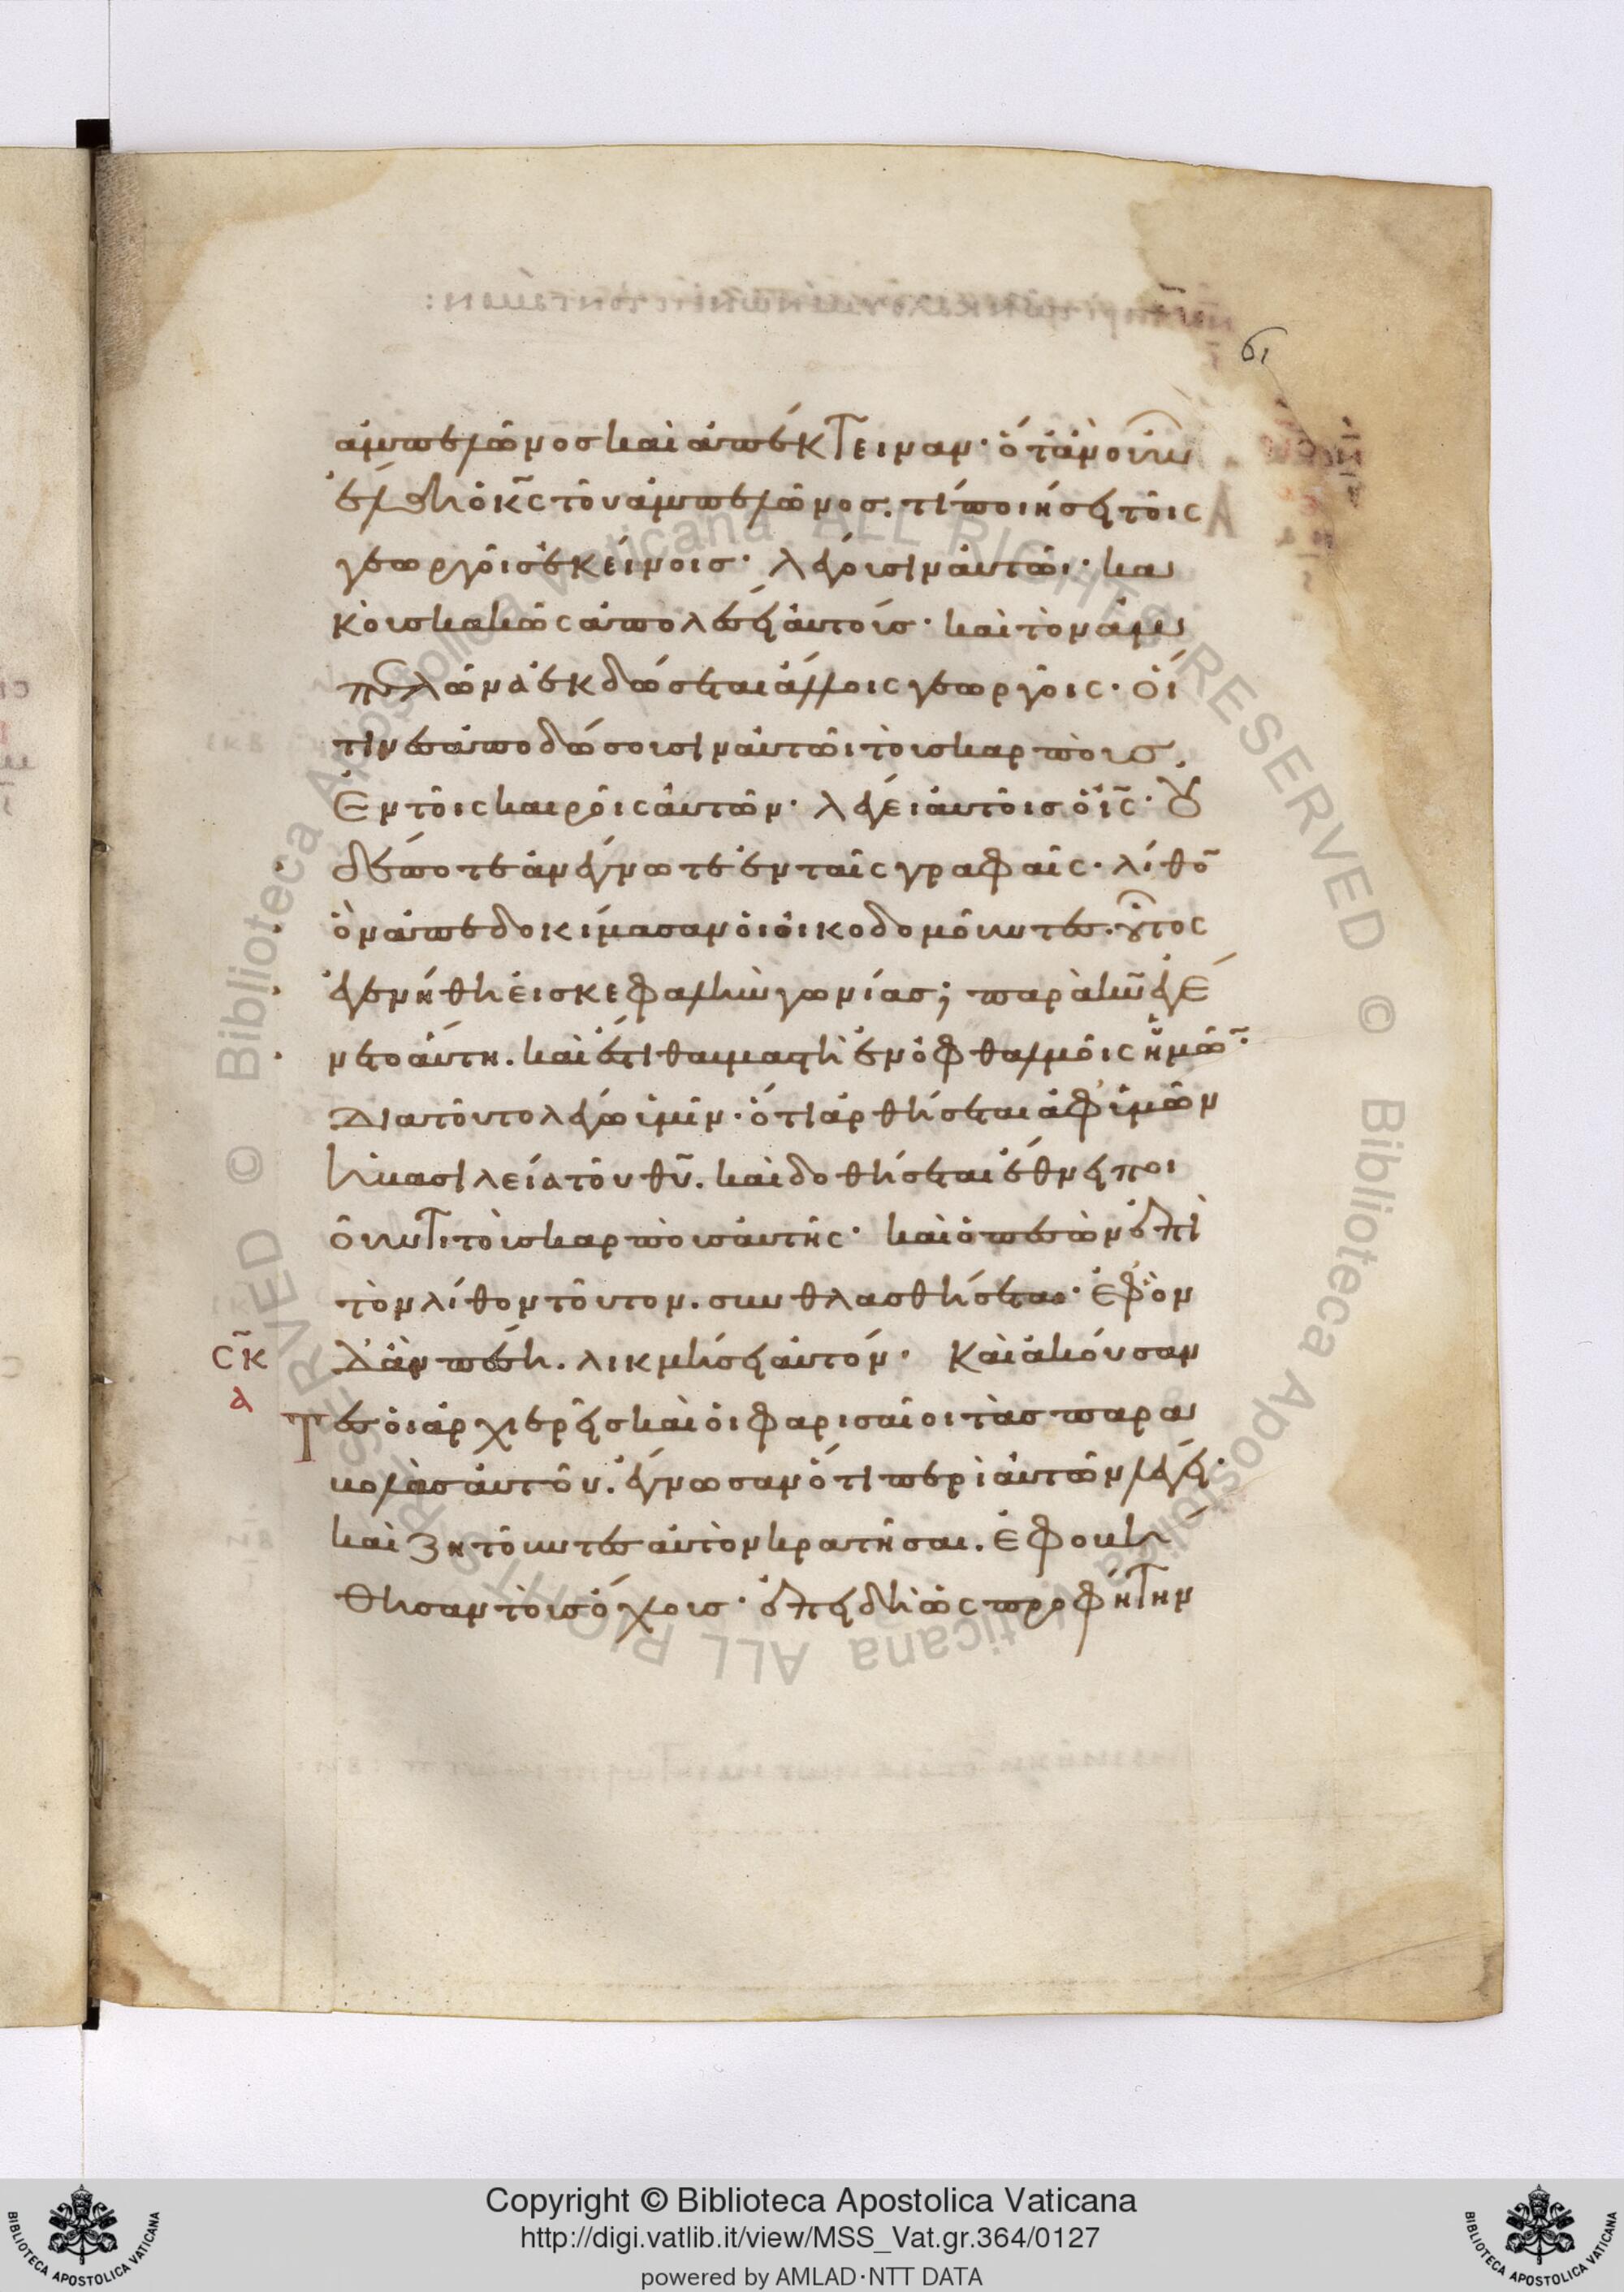 61
ἀμπελῶνος καὶ ἀπέκτειναν· ὅταν οὖν
ἔλθη ὁ κ̅ς̅ τοῦ ἀμπελῶνος. τί ποιήσει τοῖς
γεωργοῖς ἐκείνοις· λέγουσιν αὐτῶι· κα
κοὺς κακῶς ἀπολέσει αὐτούς· καὶ τὸν ἀμ
πελῶνα ἐκδώσεται ἄλλοις γεωργοῖς· οἵ
τινες ἀποδώσουσιν αὐτῶι τοὺς καρποὺς,
Ἐν τοῖς καιροῖς αὐτῶν· λέγει αὐτοῖς ὁ ι̅ς̅· οὐ
δέποτε ἀνέγνωτε ἐν ταῖς γραφαῖς· λίθο̅
ὃν ἀπεδοκίμασαν οἱ οἰκοδομοῦντες. οὗτος
ἐγενήθη εἰς κεφαλὴν γωνίας; παρὰ κ̅υ̅ ἐγέ
νετο αὕτη. καὶ ἔστι θαυμαστὴ ἐν ὀφθαλμοῖς ἡμῶ̅·
Διατοῦτο λέγω ὑμῖν· ὅτι ἀρθήσεται ἀφ' ὑμῶν
ἡ βασιλεία τοῦ θ̅υ̅. καὶ δοθήσεται ἔθνει ποι
οῦντι τοὺς καρποὺς αὐτῆς· καὶ ὁ πεσὼν ἐπὶ
τὸν λίθον τοῦτον. συνθλασθήσεται· ἐφ' ὃν
δ' ἂν πέση. λικμήσει αὐτόν· Καὶ ἀκούσαν
σ̅κ̅
α
Τες οἱ ἀρχιερεῖς καὶ οἱ φαρισαῖοι τὰς παρα
βολὰς αὐτοῦ. ἔγνωσαν ὅτι περὶ αὐτῶν λέγει·
καὶ ζητοῦντες αὐτὸν κρατῆσαι. ἐφοβή
θησαν τοὺς ὄχλους· ἐπειδὴ ὡς προφήτην
© Biblioteca Apostolica Vaticana ALL RIGHTS RESERVED © Biblioteca Apostolica Vaticana ALL RIGHTS RESERVED
Copyright © Biblioteca Apostolica Vaticana
http://digi.vatlib.it/view/MSS_Vat.gr.364/0127
powered by AMLAD·NTT DATA
BIBLIOTECA APOSTOLICA VATICANA
BIBLIOTECA APOSTOLICA VATICANA